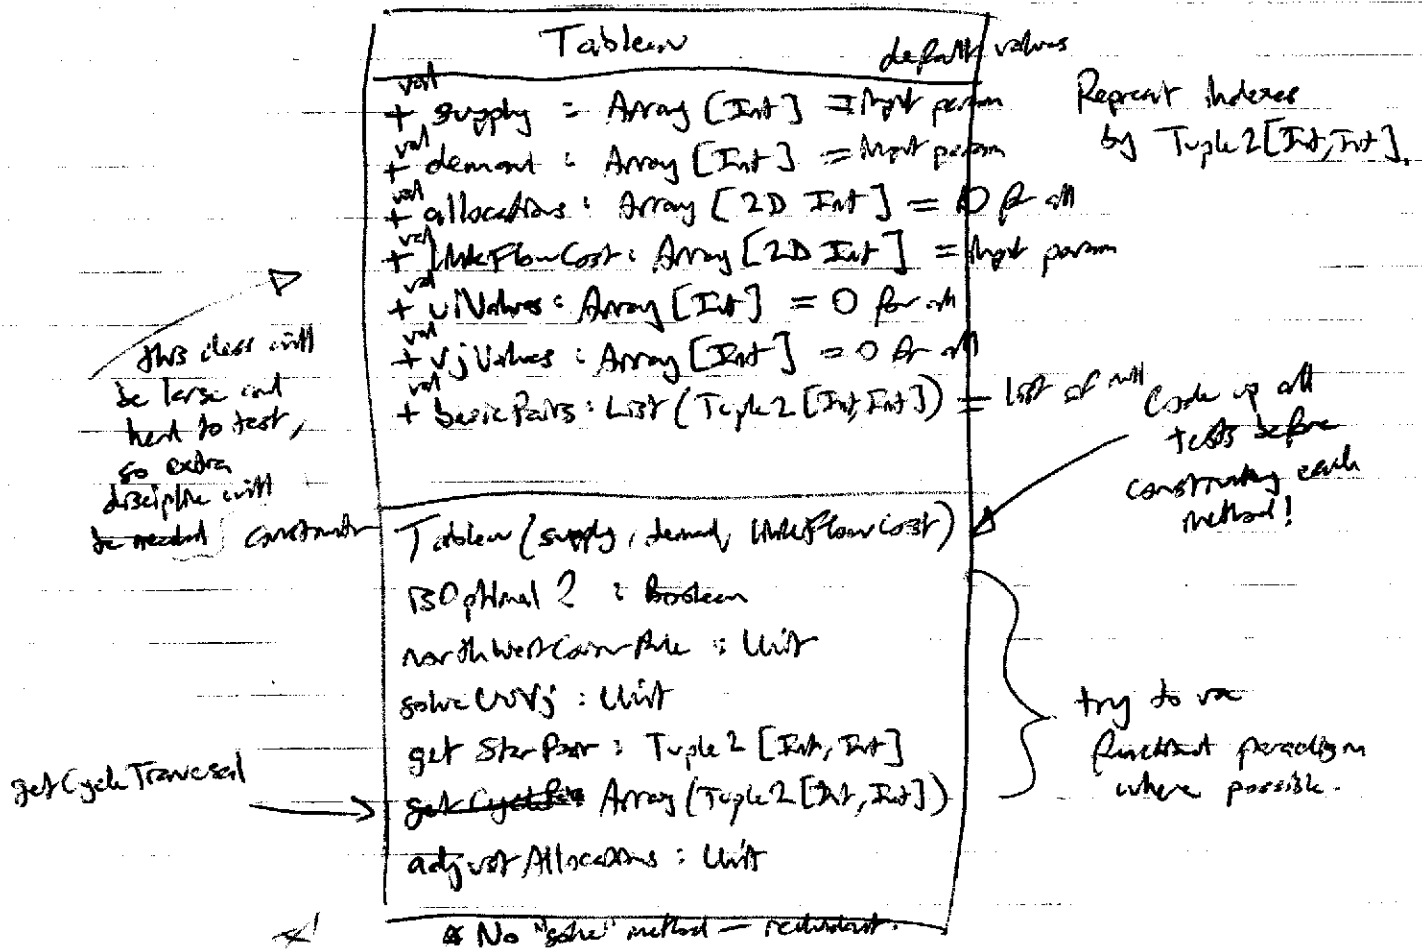 Tableau
default values
val
+ supply : Array [Int] = Input param
val
+ demand : Array [Int] = Input param
val
+ allocations : Array [2D Int] = 0 for all
val
+ linkFlowCost : Array [2D Int] = Input param
val
+ uiValues : Array [Int] = 0 for all
val
+ vjValues : Array [Int] = 0 for all
val
+ basicPairs : List (Tuple2 [Int, Int]) = list of null
Represent indexes
by Tuple2[Int, Int].
this class will
be large and
hard to test,
so extra
discipline will
be needed
Code up all
tests before
constructing each
method!
constructor
Tableau (supply, demand, linkFlowCost)
isOptimal? : Boolean
northWestCornerRule : Unit
solveUiVj : Unit
getStarPair : Tuple2 [Int, Int]
getCycleTraversal
Array (Tuple2 [Int, Int])
adjustAllocations : Unit
try to use
functional paradigm
where possible.
* No "solve" method — redundant.